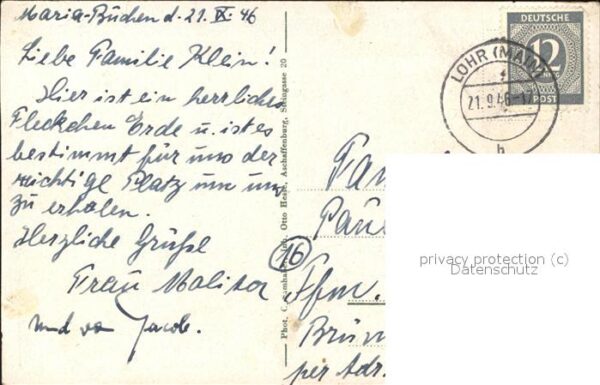 Maria-Buchen d. 21. IX. 46
Liebe Familie Klein!
Hier ist ein herrliches
Fleckchen Erde u. ist es
bestimmt für uns der
richtige Platz um uns
zu erholen.
Herzliche Grüße
Frau Malisa
und von Jacob.
Phot. C. Samhaber, Inh. Otto Hesse, Aschaffenburg, Steingasse 20
DEUTSCHE
12
POST
LOHR (MAIN)
21.9.46-17
b
Fam
Paul
16
Ffm.
Brün
per Adr.
privacy protection (c)
Datenschutz